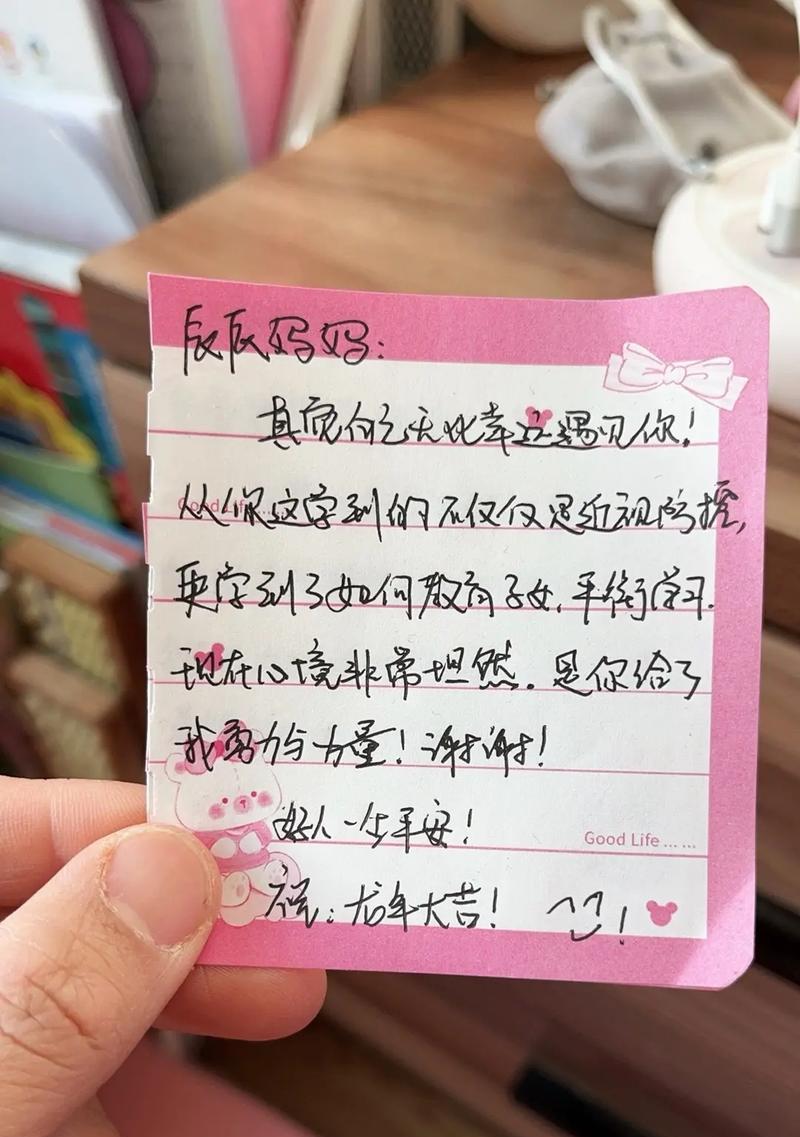 辰辰妈妈：
真 无比幸 遇见你！
Good Life
从你这学到的不仅仅是近视防控，
更学到了如何教育子女，平衡学习.
现在心境非常坦然. 是你给了
我勇力与力量！谢谢！
好人一生平安！
Good Life ... ...
祝：龙年大吉！